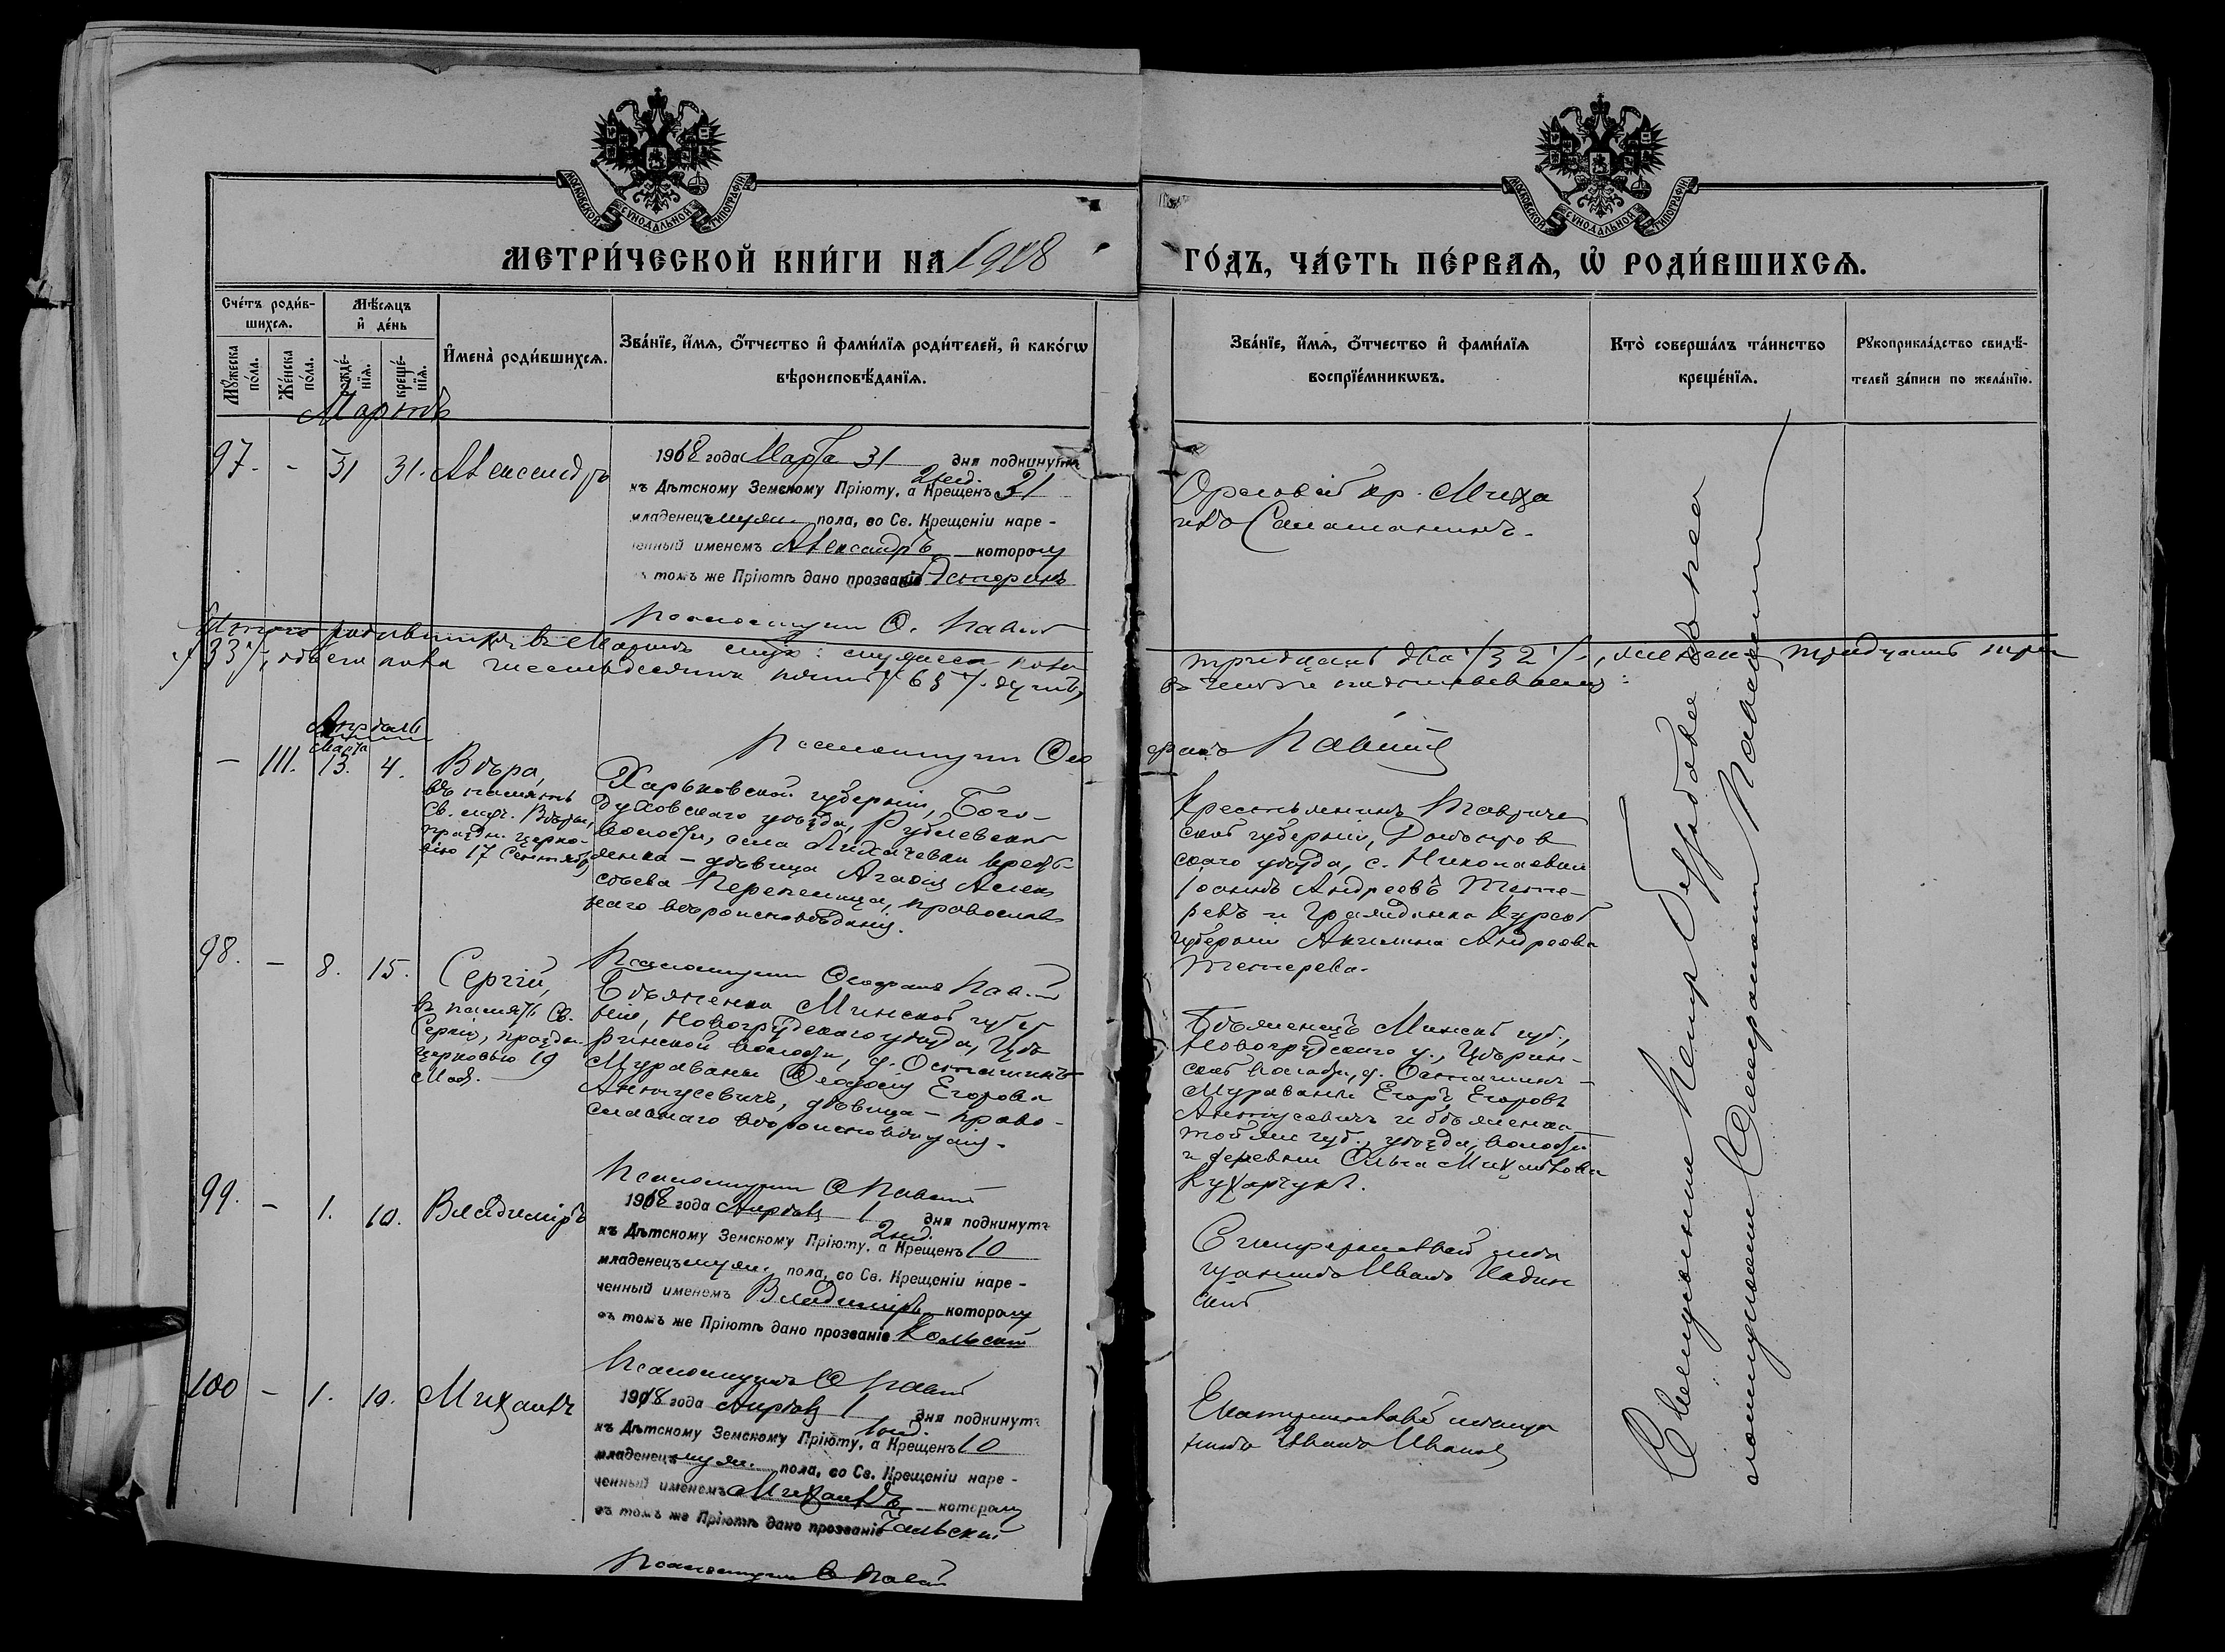 МОСКОВСКОЙ СѴНОДАЛЬНОЙ ТИПОГРАФІИ
МОСКОВСКОЙ СѴНОДАЛЬНОЙ ТИПОГРАФІИ
МЕТРИ́ЧЕСКОЙ КНИ́ГИ НА 1918
ГО́ДЪ, ЧА́СТЬ ПЕ́РВАѦ, Ѡ РОДИ́ВШИХСѦ.
Сче́тъ роди́в-
шихсѧ.
Мѣ́сѧцъ
и҆ де́нь
Мꙋ́жеска по́ла.
Же́нска по́ла.
рожде́-
нїѧ.
креще́-
нїѧ.
И҆мена̀ роди́вшихсѧ.
Зва́нїе, и҆́мѧ, ѻ҆́тчество и҆ фами́лїѧ роди́телей, и҆ како́гѡ
вѣроисповѣ́данїѧ.
Зва́нїе, и҆́мѧ, ѻ҆́тчество и҆ фами́лїѧ
воспрїе́мникѡвъ.
Кто̀ соверша́лъ та́инство
креще́нїѧ.
Рꙋкоприкла́дство свидѣ́-
телей за́писи по жела́нїю.
Мартъ
97. - 31 31. Александръ
1918 года Марта 31 дня подкинутъ
къ Дѣтскому Земскому Пріюту, а Крещенъ 31
младенецъ муж. пола, во Св. Крещеніи наре-
ченный именемъ Александръ которому
въ томъ же Пріютѣ дано прозваніе
Псаломщикъ Ѳ.
Орловской кр. Миха
илъ
Итого родившихся въ Мартѣ мѣс: мужеска пола
тридцать два /32/, женска тридцать три
/33/, обоего пола шестьдесятъ пять /65/ душъ,
Апрѣль
Псаломщикъ Ѳео
фанъ
— 111. Марта 13. 4. Вѣра,
въ память
Св. муч. Вѣры,
праздн. церко-
вію 17 Сентября
Харьковской губерніи, Бого-
духовскаго уѣзда, Рублевской
волости, села Лихачевки крест-
янка - дѣвица Агафія Алек
сѣева Перепелица, православ
наго вѣроисповѣданія.
Крестьянинъ Тавриче
ской губерніи, Днѣпров
скаго уѣзда, с. Николаевки
Іоаннъ Андреевъ Тете-
ревъ и гражданка Курской
губерніи Акилина Андреева
Тетерева.
98. — 8. 15. Сергій,
въ память Св.
Сергія, праздн.
церковью 19
Мая.
Псаломщикъ Ѳеофанъ
Бѣженка Минской губер
ніи, Новогрудскаго уѣзда, Цы
ринской волости, д. Осташинъ
Мураванъ Ѳеодосія Егорова
Антусевичъ, дѣвица - право-
славнаго вѣроисповѣданія.
Бѣженецъ Минской губ.,
Новогрудскаго у., Цырин-
ской волости, д. Осташинъ -
Мураванъ Егоръ Егоровъ
Антусевичъ и бѣженка
той же губ., уѣзда, волости
и деревни Ольга Михайлова
Кухарчукъ.
99. — 1. 10. Владиміръ
Псаломщикъ Ѳ
1918 года Апрѣля 1 дня подкинутъ
къ Дѣтскому Земскому Пріюту, а Крещенъ 10
младенецъ муж. пола, во Св. Крещеніи наре-
ченный именемъ Владиміръ которому
въ томъ же Пріютѣ дано прозваніе Кольскій
Симферопольскій мѣ
щанинъ Иванъ
100 — 1. 10. Михаилъ
Псаломщикъ Ѳ
1918 года Апрѣля 1 дня подкинутъ
къ Дѣтскому Земскому Пріюту, а Крещенъ 10
младенецъ муж. пола, во Св. Крещеніи наре-
ченный именемъ Михаилъ которому
въ томъ же Пріютѣ дано прозваніе
мѣща
нинъ Иванъ Иванов
Псаломщикъ Ѳ
Священникъ Петръ
псаломщикомъ